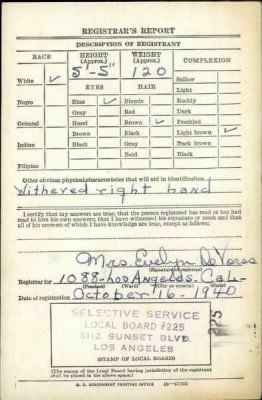 REGISTRAR'S REPORT
DESCRIPTION OF REGISTRANT
RACE HEIGHT (Approx.) WEIGHT (Approx.) COMPLEXION
5'-5" 120
White ✓ EYES HAIR Sallow
Light
Negro Blue ✓ Blonde Ruddy
Gray Red Dark
Oriental Hazel Brown ✓ Freckled
Brown Black Light brown ✓
Indian Black Gray Dark brown
Bald Black
Filipino
Other obvious physical characteristics that will aid in identification
Withered right hand
I certify that my answers are true; that the person registered has read or has had read to him his own answers; that I have witnessed his signature or mark and that all of his answers of which I have knowledge are true, except as follows:
Mrs. Evelyn
(Signature of registrar)
Registrar for 1088-Los Angeles-Cal-
(Precinct) (Ward) (City or county)
Date of registration October-16-1940
SELECTIVE SERVICE
LOCAL BOARD #225
3112 SUNSET BLVD.
LOS ANGELES
225
(STAMP OF LOCAL BOARD)
(The stamp of the Local Board having jurisdiction of the registrant shall be placed in the above space.)
U. S. GOVERNMENT PRINTING OFFICE